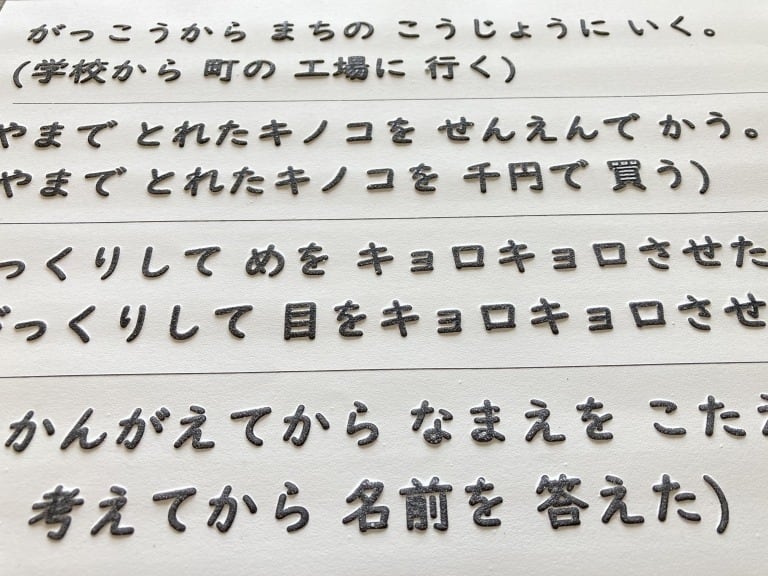 がっこうから まちの こうじょうに いく。
(学校から 町の 工場に 行く)
やまで とれたキノコを せんえんで かう。
やまで とれたキノコを 千円で 買う)
っくりして めを キョロキョロさせた
びっくりして 目をキョロキョロさせ
かんがえてから なまえを こたえ
考えてから 名前を 答えた)